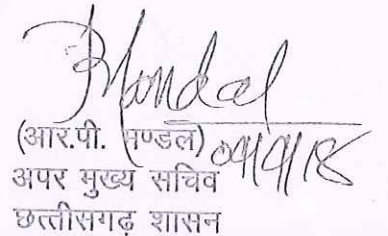 Mondal
(आर.पी. मण्डल)
अपर मुख्य सचिव
छत्तीसगढ़ शासन